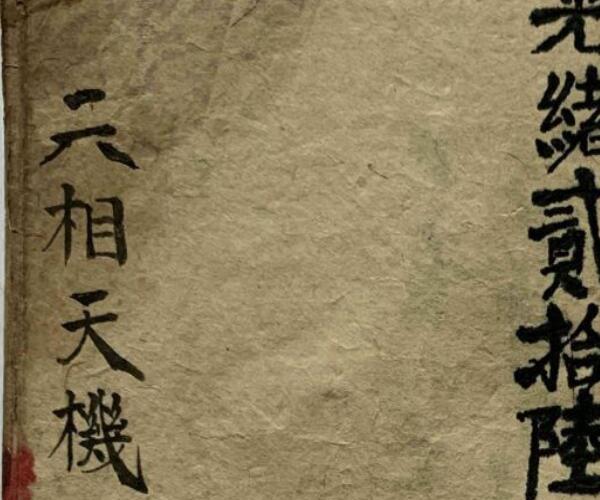 光緒貳拾陸
六相天機